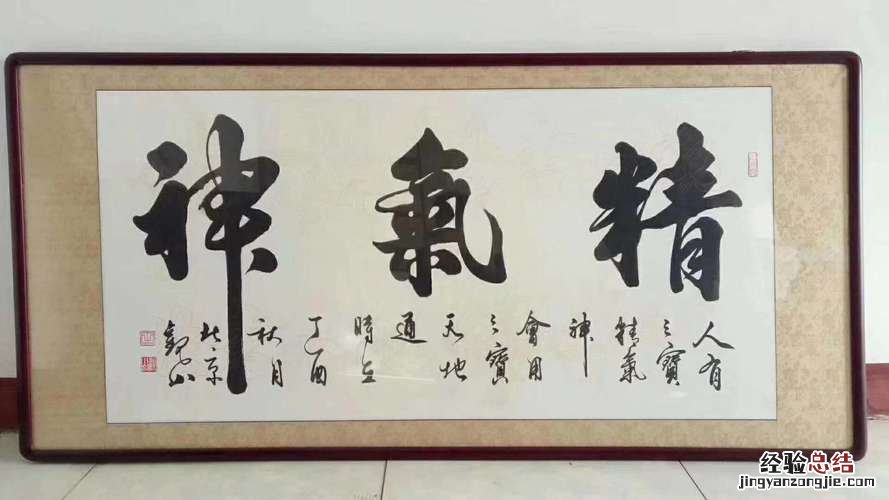 精氣神
人有
之寶
精氣
神
會用
之寶
天地
通
時在
丁酉
秋月
於京
觀山
经验总结
jingyanzongjie.com